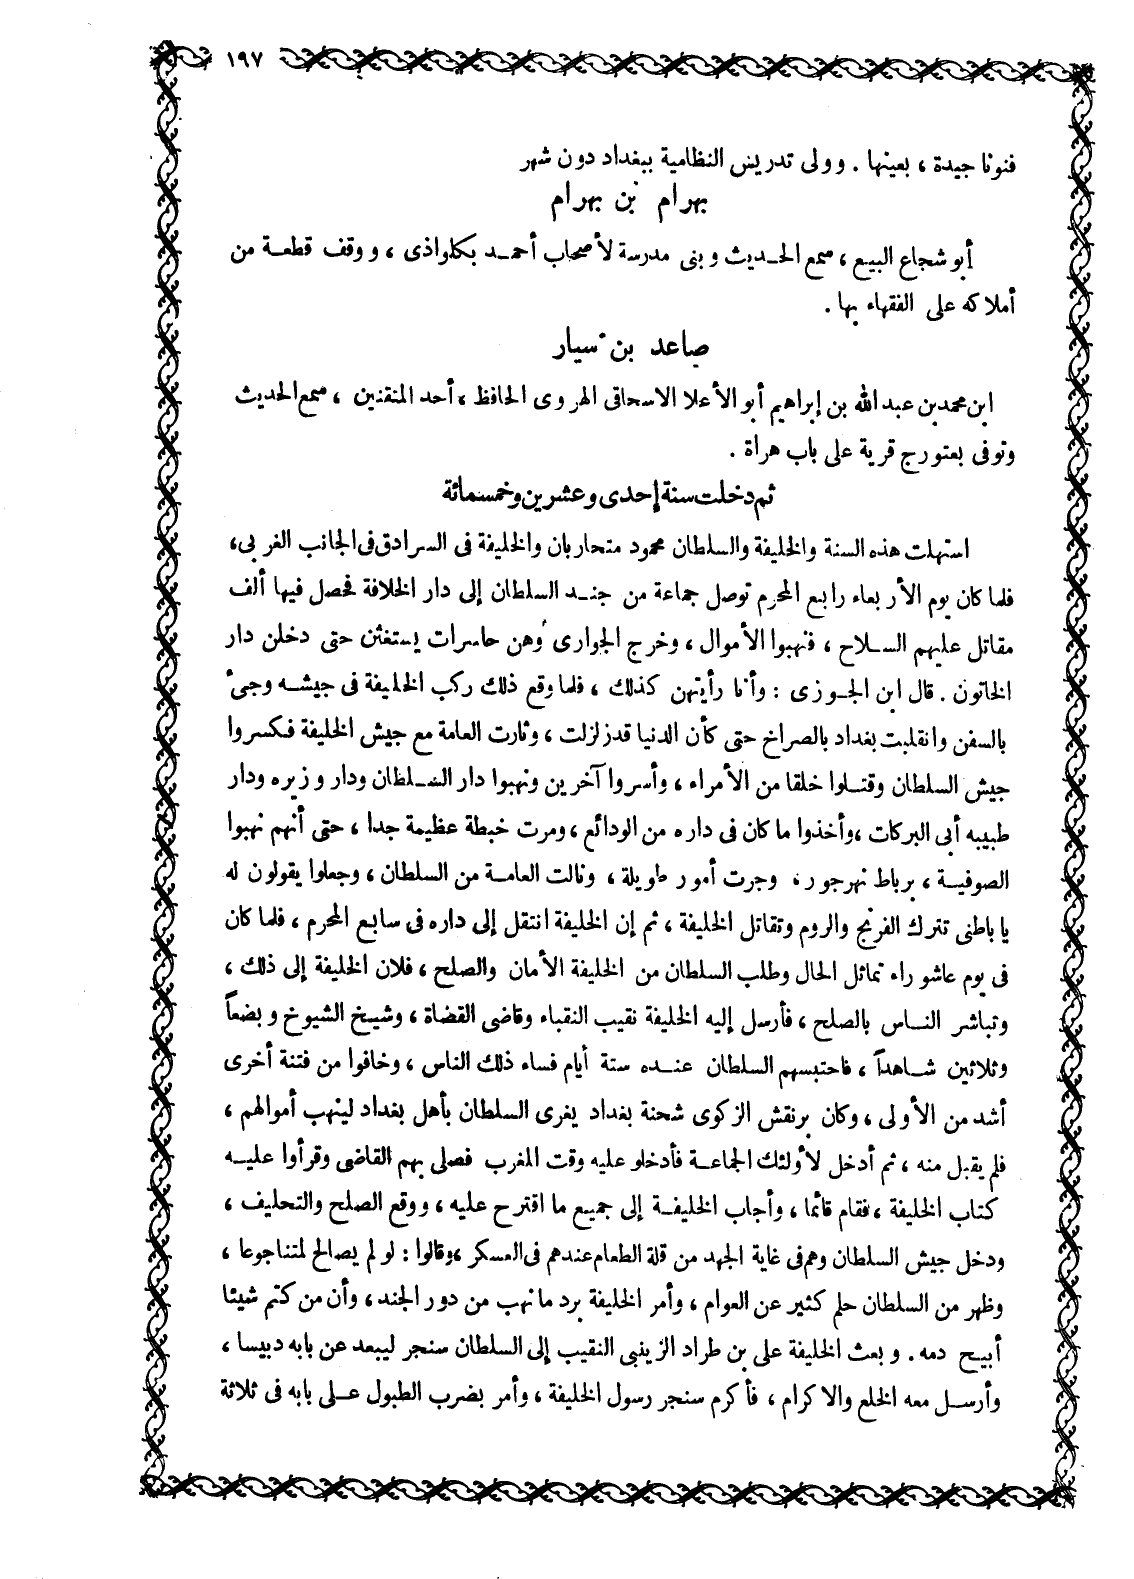 ١٩٧
فنونا جيدة ، بعينها . وولى تدريس النظامية ببغداد دون شهر
بهرام بن بهرام
أبو شجاع البيع ، سمع الحديث وبنى مدرسة لأصحاب أحمد بكلواذى ، ووقف قطعة من
أملاكه على الفقهاء بها .
صاعد بن سيار
ابن محمد بن عبد الله بن إبراهيم أبو الأعلا الاسحاقى الهروى الحافظ ، أحد المتقنين ، سمع الحديث
وتوفى بعتورج قرية على باب هراة .
ثم دخلت سنة إحدى وعشرين وخمسمائة
استهلت هذه السنة والخليفة والسلطان محمود متحاربان والخليفة فى السرادق فى الجانب الغربى ،
فلما كان يوم الأربعاء رابع المحرم توصل جماعة من جند السلطان إلى دار الخلافة فحصل فيها ألف
مقاتل عليهم السلاح ، فنهبوا الأموال ، وخرج الجوارى وهن حاسرات يستغثن حتى دخلن دار
الخاتون . قال ابن الجوزى : وأنا رأيتهن كذلك ، فلما وقع ذلك ركب الخليفة فى جيشه وجىء
بالسفن وانقلبت بغداد بالصراخ حتى كأن الدنيا قد زلزلت ، وثارت العامة مع جيش الخليفة فكسروا
جيش السلطان وقتلوا خلقا من الأمراء ، وأسروا آخرين ونهبوا دار السلطان ودار وزيره ودار
طبيبه أبى البركات ، وأخذوا ما كان فى داره من الودائع ، ومرت خبطة عظيمة جدا ، حتى أنهم نهبوا
الصوفية ، برباط نهرجور ، وجرت أمور طويلة ، ونالت العامة من السلطان ، وجعلوا يقولون له
يا باطنى تترك الفرنج والروم وتقاتل الخليفة ، ثم إن الخليفة انتقل إلى داره فى سابع المحرم ، فلما كان
فى يوم عاشوراء تماثل الحال وطلب السلطان من الخليفة الأمان والصلح ، فلان الخليفة إلى ذلك ،
وتباشر الناس بالصلح ، فأرسل إليه الخليفة نقيب النقباء وقاضى القضاة ، وشيخ الشيوخ وبضعاً
وثلاثين شاهداً ، فاحتبسهم السلطان عنده ستة أيام فساء ذلك الناس ، وخافوا من فتنة أخرى
أشد من الأولى ، وكان برنقش الزكوى شحنة بغداد يغرى السلطان بأهل بغداد لينهب أموالهم ،
فلم يقبل منه ، ثم أدخل لأولئك الجماعة فأدخلو عليه وقت المغرب فصلى بهم القاضى وقرأوا عليه
كتاب الخليفة ، فقام قائما ، وأجاب الخليفة إلى جميع ما اقترح عليه ، ووقع الصلح والتحليف ،
ودخل جيش السلطان وهم فى غاية الجهد من قلة الطعام عندهم فى العسكر ، وقالوا : لو لم يصالح لمتنا جوعا ،
وظهر من السلطان حلم كثير عن العوام ، وأمر الخليفة برد ما نهب من دور الجند ، وأن من كتم شيئا
أبيح دمه . وبعث الخليفة على بن طراد الزينبى النقيب إلى السلطان سنجر ليبعد عن بابه دبيسا ،
وأرسل معه الخلع والاكرام ، فأكرم سنجر رسول الخليفة ، وأمر بضرب الطبول على بابه فى ثلاثة